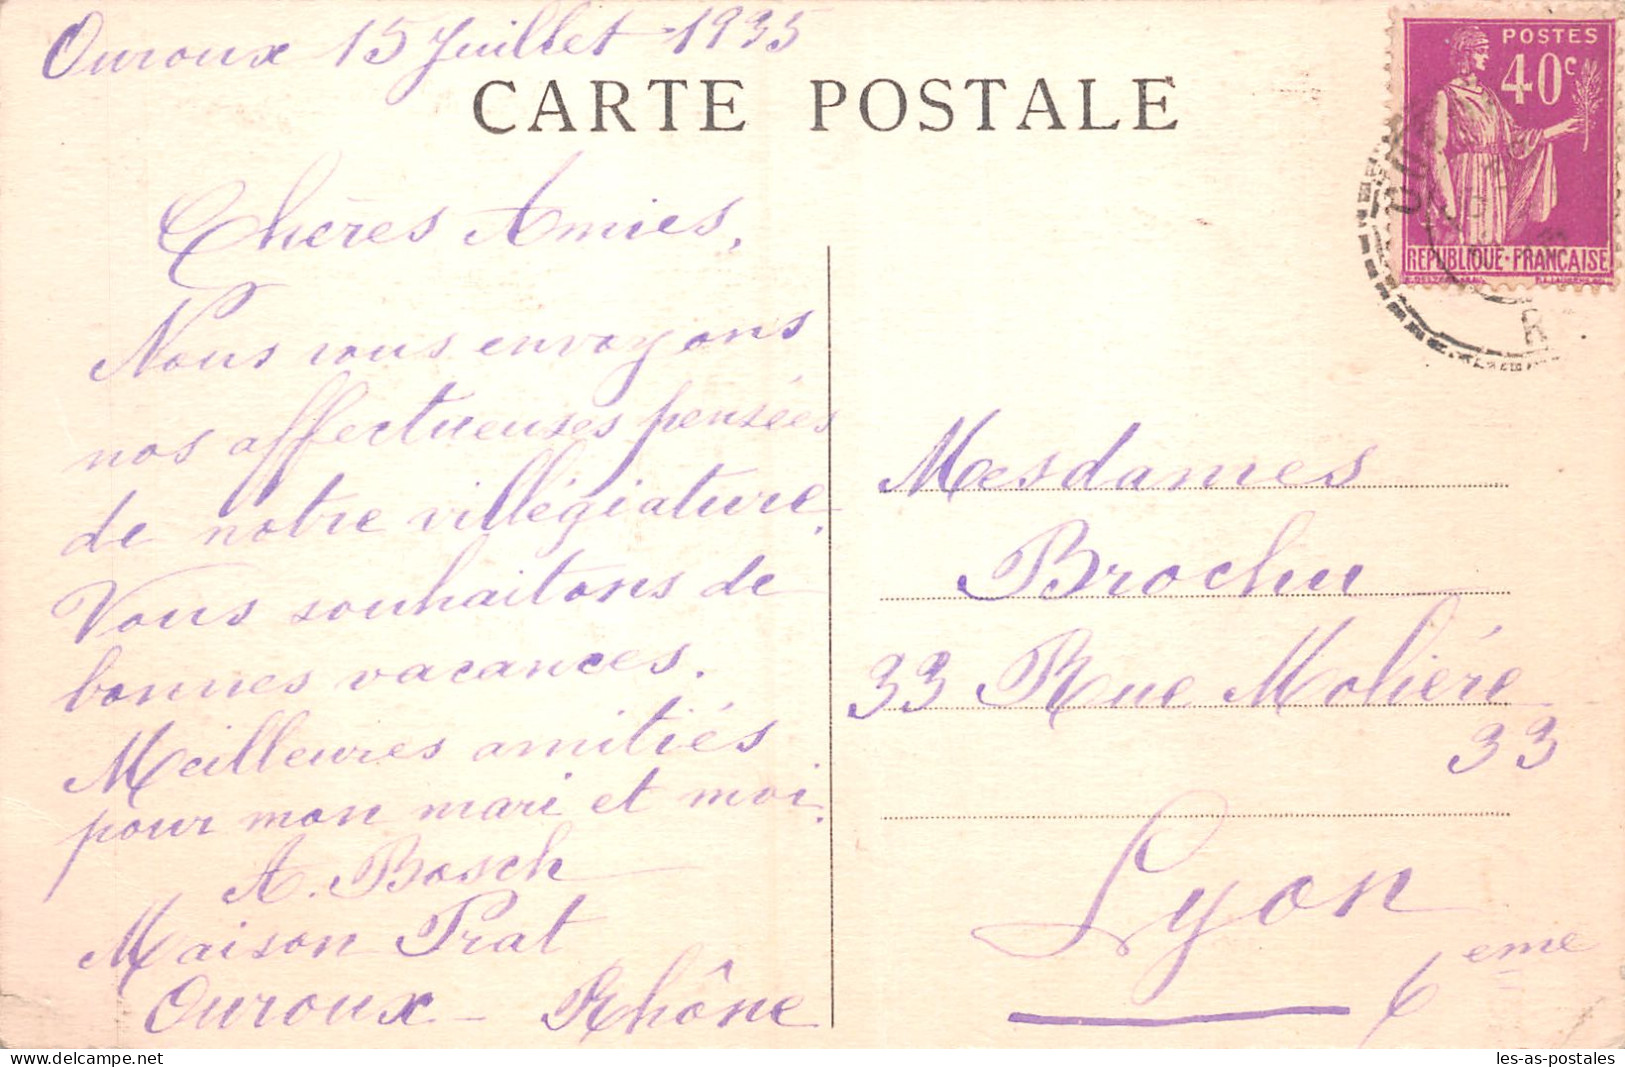 Ouroux 15 Juillet 1935
CARTE POSTALE
POSTES
40c
REPUBLIQUE·FRANÇAISE
Chères Amies,
Nous vous envoyons
nos affectueuses pensées
de notre villégiature.
Vous souhaitons de
bonnes vacances.
Meilleures amitiés
pour mon mari et moi.
A. Bosch
Maison Prat
Ouroux - Rhône
Mesdames
Brochu
33 Rue Molière
33
Lyon
6eme
les-as-postales © delcampe.net